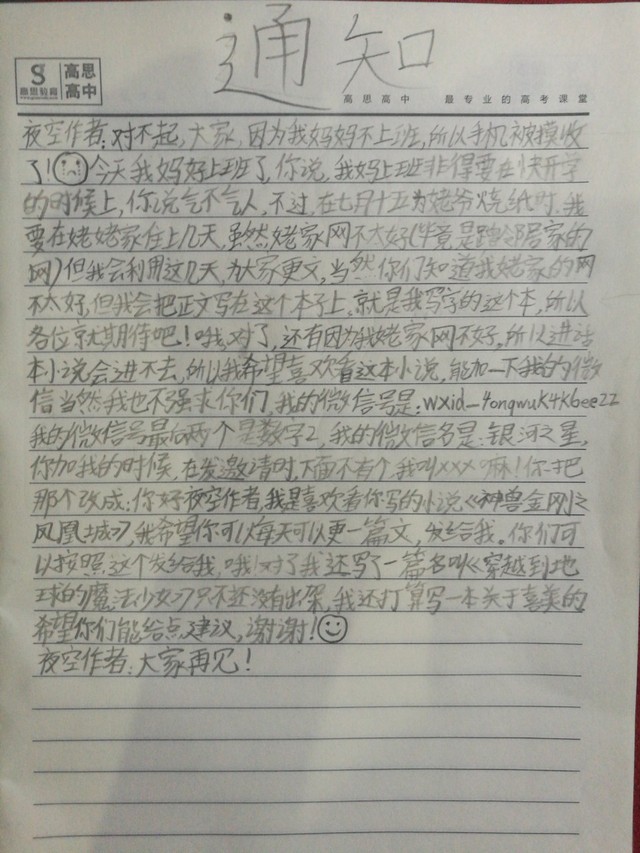 通知
高思教育
高思
高中
高思高中 最专业的高考课堂
夜空作者:对不起,大家,因为我妈妈不上班,所以手机被摸收
了!今天我妈妈上班了,你说,我妈上班非得要在快开学
的时候上,你说气不气人,不过,在七月十五为姥爷烧纸时,我
要在姥姥家住上几天,虽然姥家网不太好(毕竟是蹭邻居家的
网)但我会利用这几天,为大家更文,当然你们知道我姥家的网
不太好,但我会把正文写在这个本子上,就是我写字的这个本,所以
各位就期待吧!哦,对了,还有因为我姥家网不好,所以进
本小说会进不去,所以我希望喜欢看这本小说,能加一下我的微
信当然我也不强求你们,我的微信号是:wxid_4ongwuk4k6ee22
我的微信号最后两个是数字2,我的微信名是:银河之星,
你加我的时候,在发邀请时,下面不有个,我叫xxx嘛!你把
那个改成:你好夜空作者,我是喜欢看你写的小说《神兽金刚之
凤凰城》,我希望你可以每天可以更一篇文,发给我。你们可
以按照这个发给我,哦!对了我还写了一篇名叫《穿越到地
球的魔法少女》只不还没有出架,我还打算写一本关于喜美的
希望你们能给点建议,谢谢!
夜空作者:大家再见!